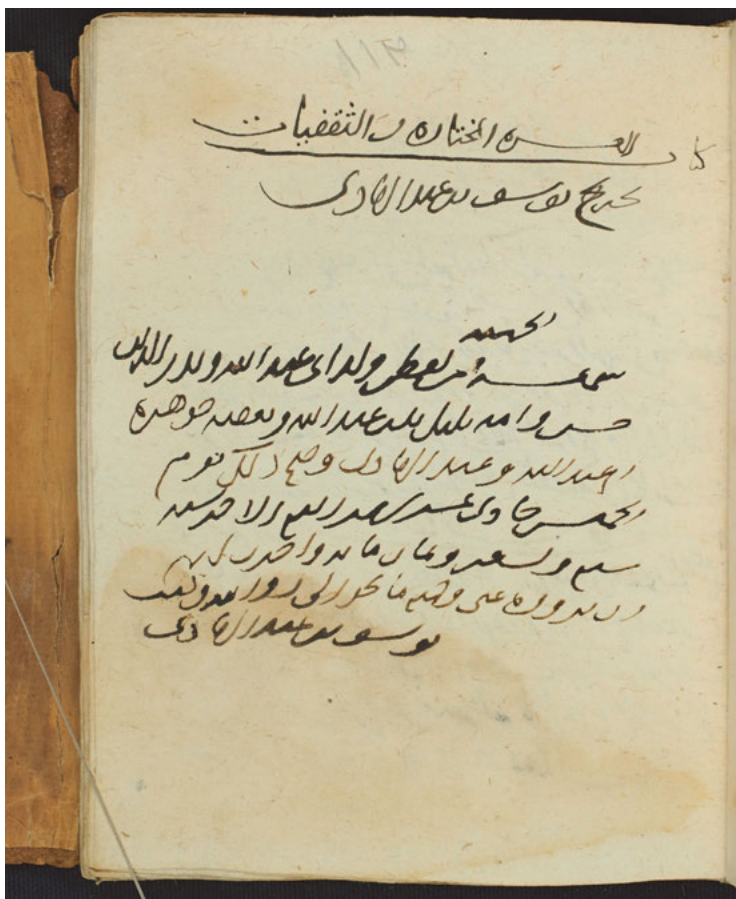 كتاب العشرة المختارة من الثقفيات
تخريج يوسف بن عبد الهادي
الحمد لله
سمعه من لفظي ولداي عبد الله وبدر الدين
حسن وامه بلبل بنت عبد الله وبعضه جوهرة
عبد الله وعبد الهادي وصح ذلك يوم
الخميس حادي عشر شهر ربيع الاخر سنة
سبع وتسعين وثمان مائة واجزت لهم
ان يرووه عني وجميع ما يجوز لي روايته وكتب
يوسف بن عبد الهادي